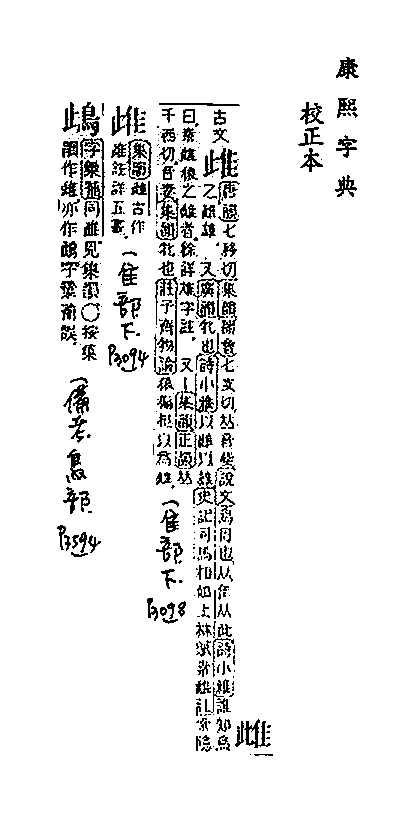 康熙字典
校正本
雌
古文
唐韻七移切集韻韻會七支切𠀤音 說文鳥母也从隹从此詩小雅誰知烏
之雌雄又廣韻牝也詩小雅以雌以雄史記司馬相如上林賦 雌 索隱
餘詳雄字註又集韻正韻𠀤
千西切音妻集韻牝也莊子齊物論猨猵狙以為雌
(隹部下
P3098
集韻雌古作
雌註詳五畫
(隹部下
P3094
字彙補同雌見集韻○按集
韻作雌亦作鴜字彙補誤
(備考鳥部
P3594